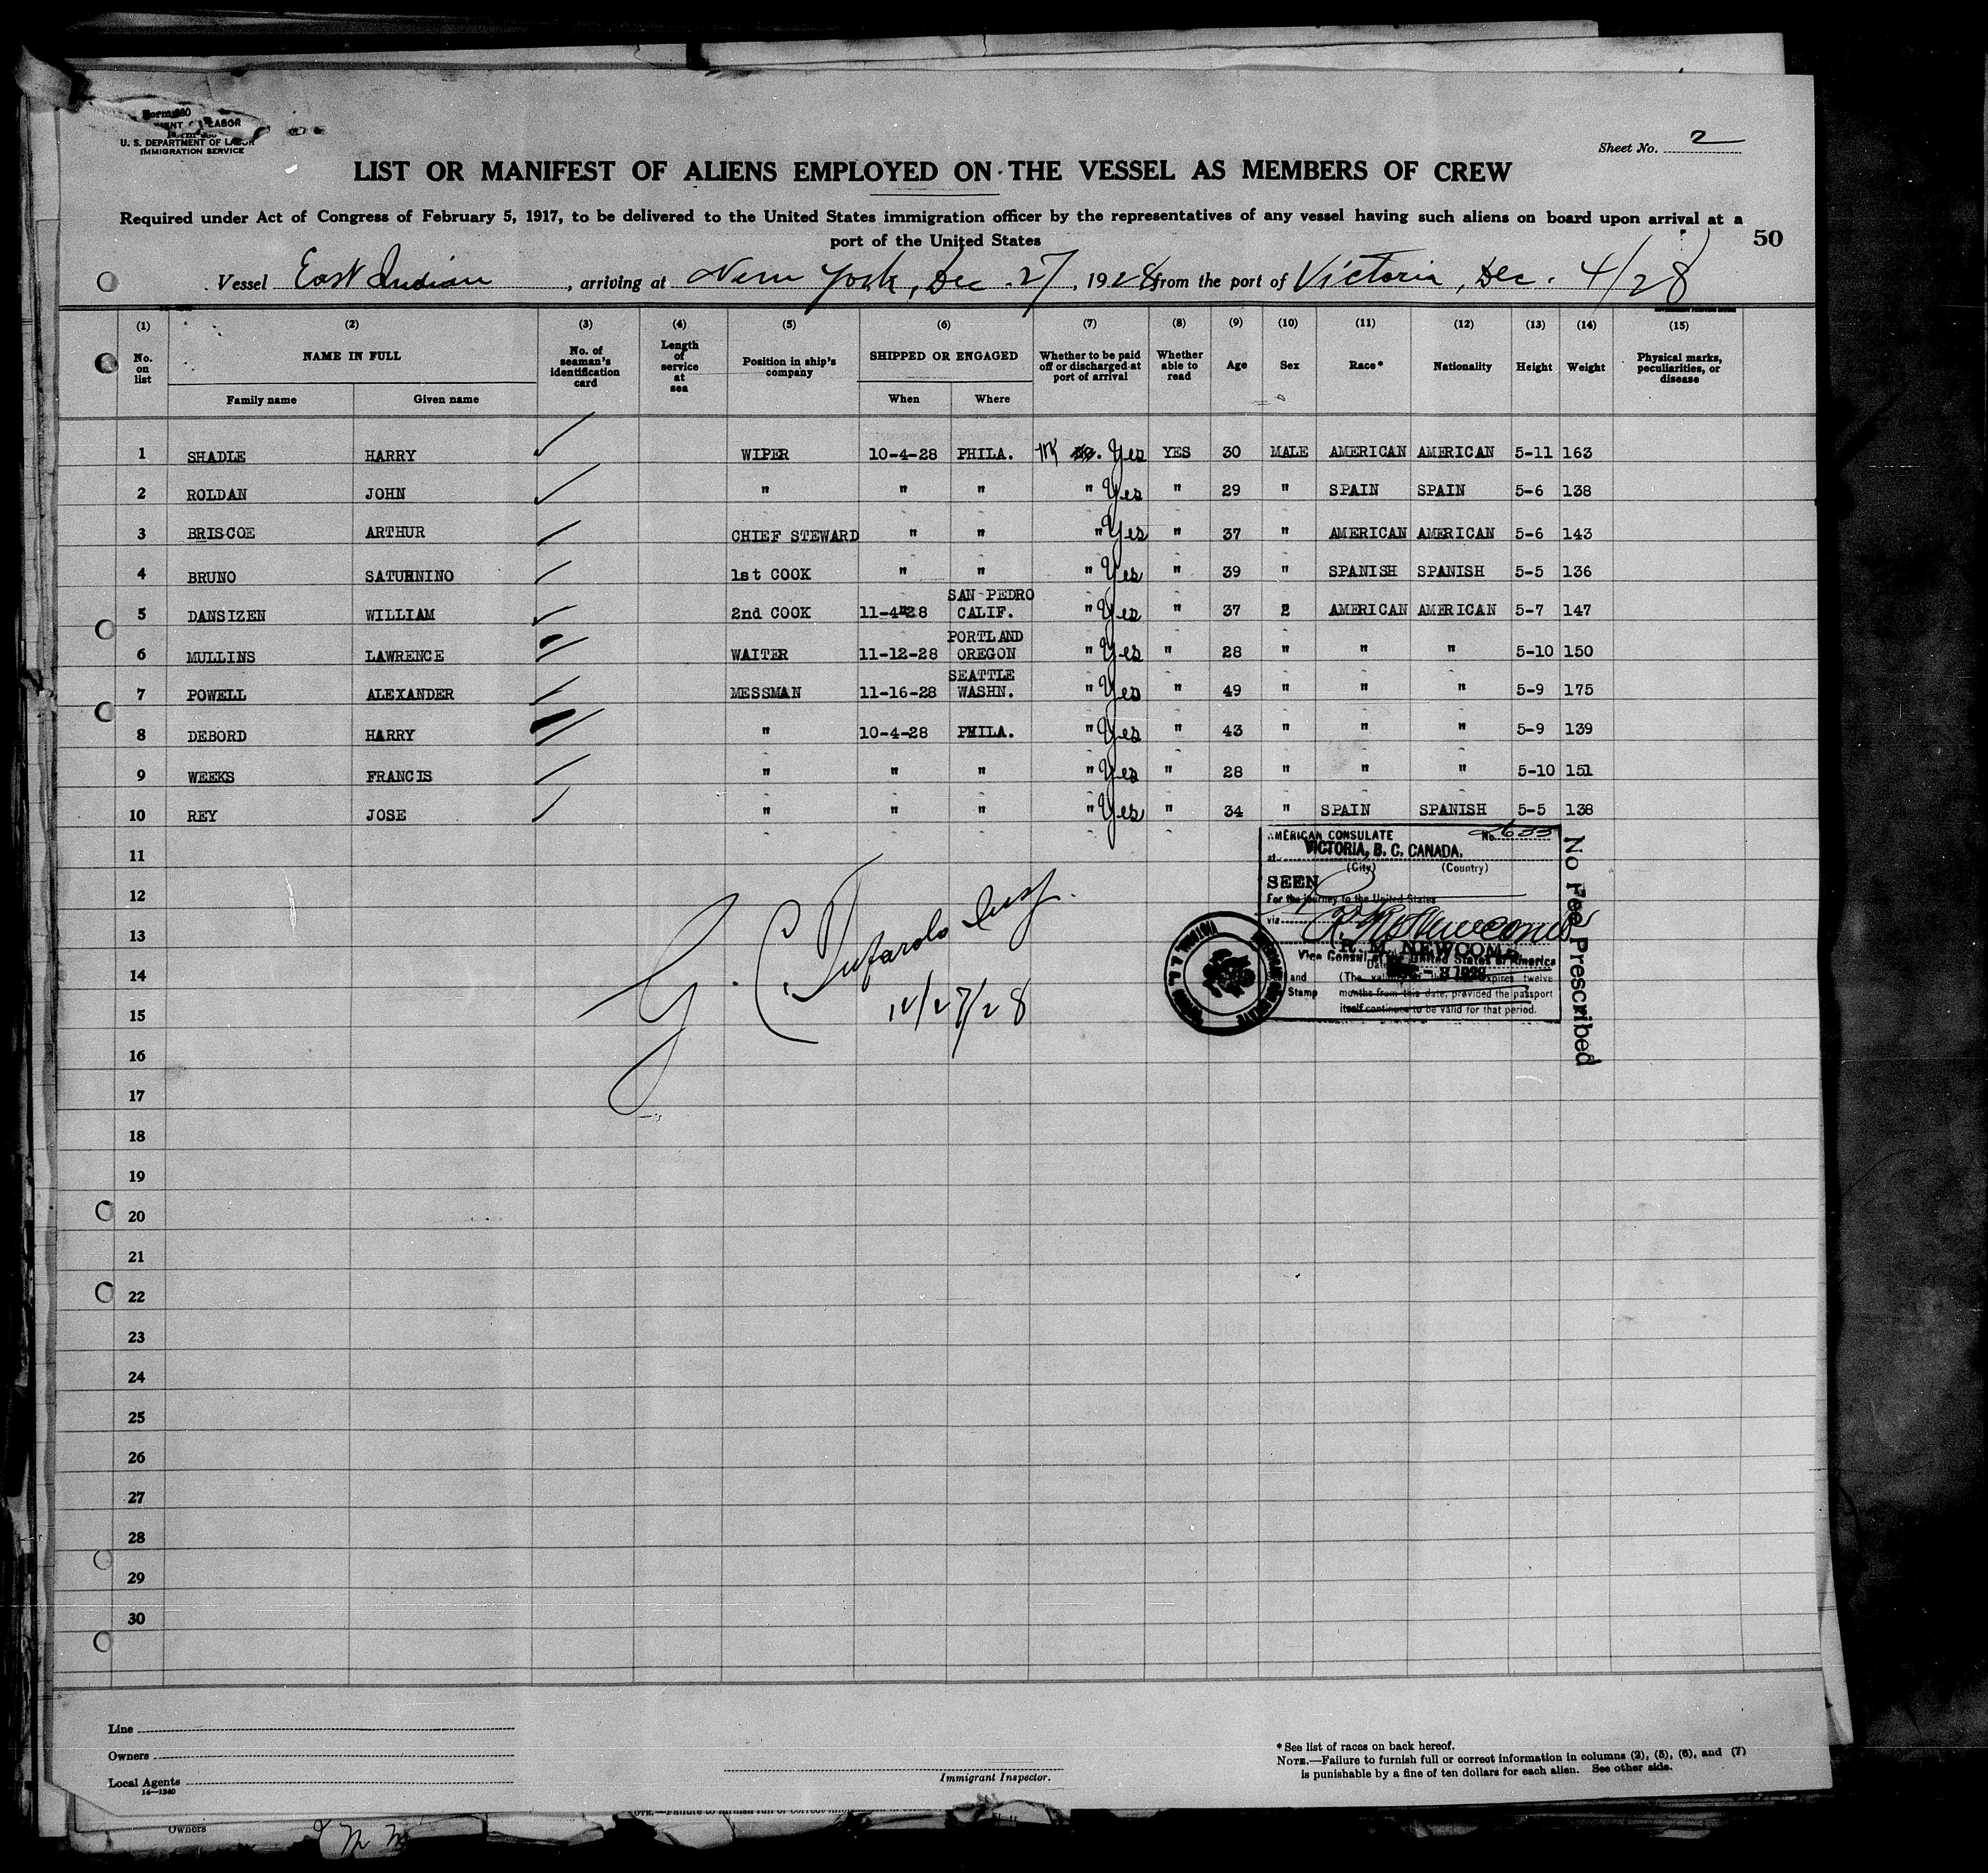 U. S. DEPARTMENT OF LABOR
IMMIGRATION SERVICE
Sheet No. 2
LIST OR MANIFEST OF ALIENS EMPLOYED ON THE VESSEL AS MEMBERS OF CREW
Required under Act of Congress of February 5, 1917, to be delivered to the United States immigration officer by the representatives of any vessel having such aliens on board upon arrival at a
port of the United States
50
Vessel East Indian, arriving at New York, Dec. 27, 1928 from the port of Victoria, Dec. 4/28
(1) (2) (3) (4) (5) (6) (7) (8) (9) (10) (11) (12) (13) (14) (15)
No. on list NAME IN FULL No. of seaman's identification card Length of service at sea Position in ship's company SHIPPED OR ENGAGED Whether to be paid off or discharged at port of arrival Whether able to read Age Sex Race* Nationality Height Weight Physical marks, peculiarities, or disease
Family name Given name When Where
1 SHADLE HARRY WIPER 10-4-28 PHILA. Yes YES 30 MALE AMERICAN AMERICAN 5-11 163
2 ROLDAN JOHN " " " " Yes " 29 " SPAIN SPAIN 5-6 138
3 BRISCOE ARTHUR CHIEF STEWARD " " " Yes " 37 " AMERICAN AMERICAN 5-6 143
4 BRUNO SATURNINO 1st COOK " " " Yes " 39 " SPANISH SPANISH 5-5 136
5 DANSIZEN WILLIAM 2nd COOK 11-4-28 SAN PEDRO CALIF. " Yes " 37 " AMERICAN AMERICAN 5-7 147
6 MULLINS LAWRENCE WAITER 11-12-28 PORTLAND OREGON " Yes " 28 " " " 5-10 150
7 POWELL ALEXANDER MESSMAN 11-16-28 SEATTLE WASHN. " Yes " 49 " " " 5-9 175
8 DEBORD HARRY " 10-4-28 PHILA. " Yes " 43 " " " 5-9 139
9 WEEKS FRANCIS " " " " Yes " 28 " " " 5-10 151
10 REY JOSE " " " " Yes " 34 " SPAIN SPANISH 5-5 138
11
12
13
14
15
16
17
18
19
20
21
22
23
24
25
26
27
28
29
30
12/27/28
AMERICAN CONSULATE No. 2633
at VICTORIA, B. C. CANADA.
(City) (Country)
SEEN
For the journey to the United States
via
R. M. Newcomb
R. M. NEWCOMB
Vice Consul of the United States of America
Date
and (The expires twelve
Stamp months from this date, provided the passport
itself continues to be valid for that period.
No Fee Prescribed
Line
Owners
Local Agents
14—1240
Immigrant Inspector.
*See list of races on back hereof.
NOTE.—Failure to furnish full or correct information in columns (2), (5), (6), and (7)
is punishable by a fine of ten dollars for each alien. See other side.
Owners